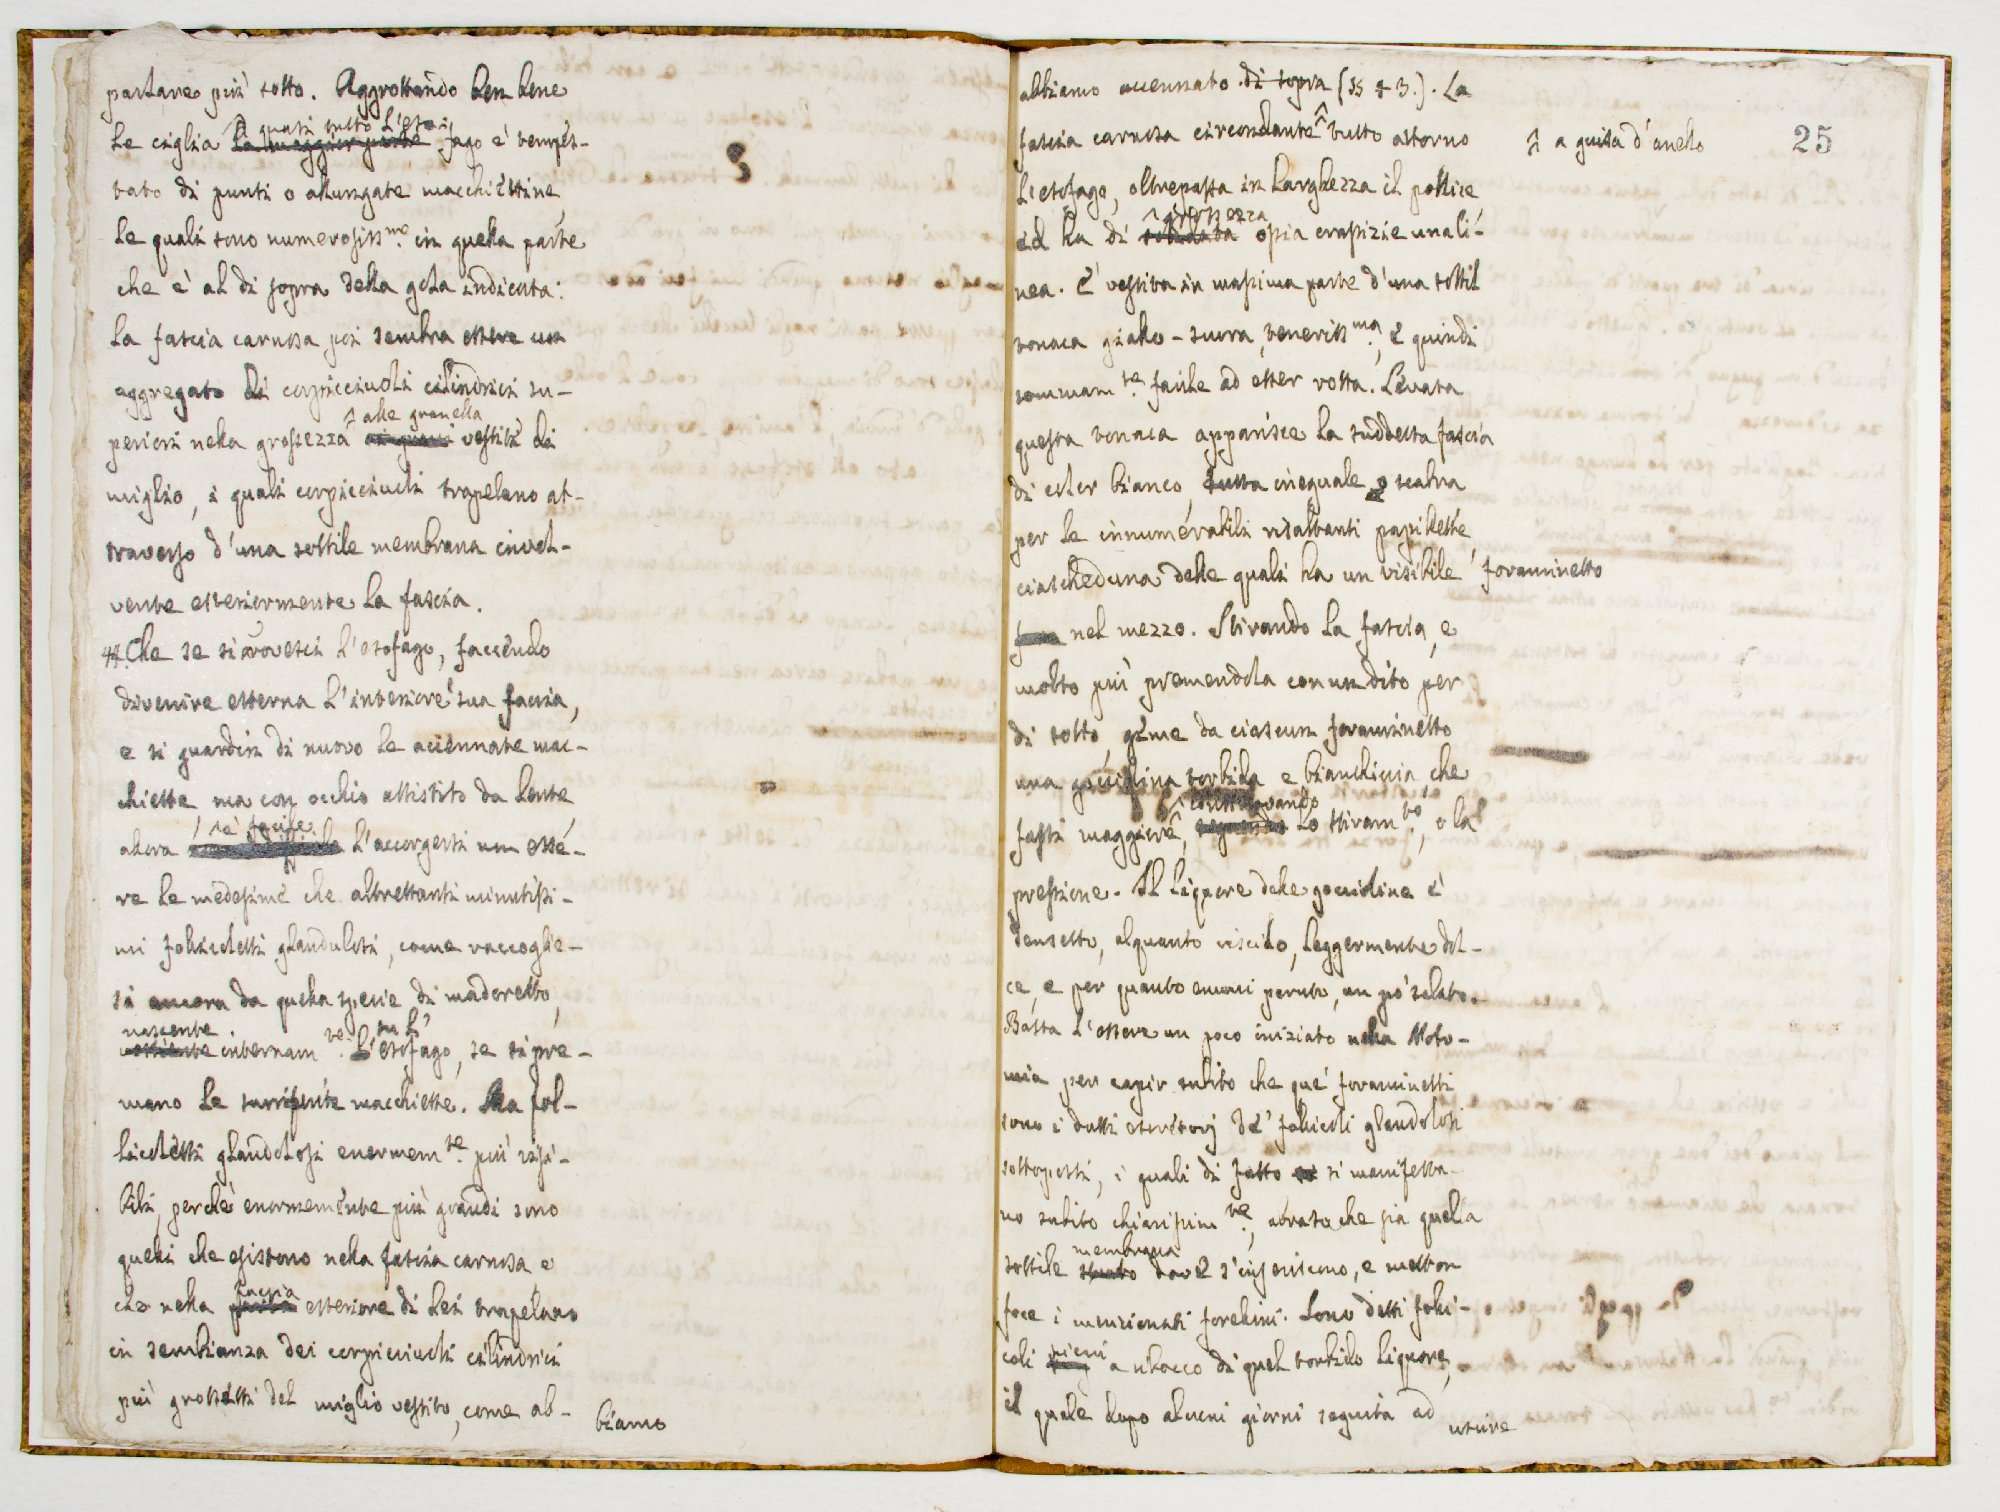 parlare più sotto. Aggrottando ben bene
quasi tutto l'eso-
le ciglia la maggior parte fago è tempes-
tato di punti o allungate macchiettine,
le quali sono numerosiss.me in quella parte
che è al di sopra della gola indicata.
La fascia carnosa poi sembra essere un
aggregato di corpicciuoli cilindrici su-
alle granella
periori nella grossezza vestiti di
miglio, i quali corpicciuoli trapelano at-
traverso d'una sottile membrana invol-
vente esteriormente la fascia.
Che se si rovesci l'esofago, faccendo
divenire esterna l'interiore sua faccia,
e si guardin di nuovo le accennate mac-
chiette ma con occhio assistito da lente,
è facile
allora l'accorgersi non esse-
re le medesime che altrettanti minutissi-
mi follicoletti glandulosi, come raccoglie-
si ancora da quella specie di madoretto,
nascente su l'
internam.te l'esofago, se si pre-
mano le surriferite macchiette. Ma fol-
licoletti glandolosi enormem.te più visi-
bili, perchè enormemente più grandi sono
quelli che esistono nella fascia carnosa e
faccia
che nella parte esteriore di lei trapelano
in sembianza dei corpicciuoli cilindrici
più grossetti del miglio vestito, come ab-
biamo
25
abbiamo accennato di sopra (§§ 3.). La
fascia carnosa circondante tutto attorno
^ a guisa d'anello
l'esofago, oltrepassa in larghezza il pollice
grossezza
ed ha di ossia crassizie una li-
nea. È vestita in massima parte d'una sottil
tonaca giallo-scura, teneriss.ma, e quindi
sommam.te facile ad esser rotta. Levata
questa tonaca apparisce la suddetta fascia
di color bianco, tutta ineguale, e scabra
per le innumerabili risaltanti papillette
ciascheduna delle quali ha un visibile foraminetto
nel mezzo. Stirando la fascia, e
molto più premendola con un dito per
di sotto, geme da ciascun foraminetto
una gocciolina torbida e bianchiccia, che
continovando
fassi maggiore, seguendo lo stiram.to, o la
pressione. Il liquore delle goccioline è
densetto, alquanto viscido, leggermente dol-
ce, e per quanto emmi paruto, un pò salato.
Basta l'essere un poco iniziato nella Noto-
mia per capir subito che que' foraminetti
sono i dutti escretorj de' follicoli glandolosi
sottoposti, i quali di fatto si manifesta-
no subito chiarissim.te, abraso che sia quella
membrana
sottile strato dove s'inseriscono, e metton
foce i menzionati forellini. Sono detti folli-
pieni
coli a ribocco di quel torbido liquore,
il quale dopo alcuni giorni seguita ad
uscire